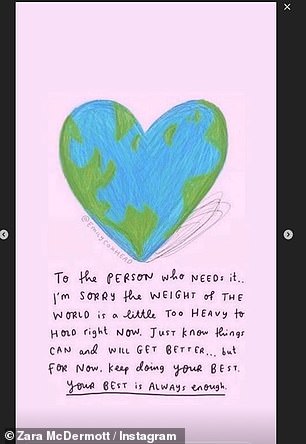 @EMILYCOXHEAD
To the PERSON who NEEDS it..
I'm SORRY the WEIGHT of THE
WORLD is a little Too HEAVY to
HOLD right NOW. Just know things
CAN and WILL GET BETTER... but
FOR NOW, keep doing YOUR BEST.
YOUR BEST is ALWAYS enough.
© Zara McDermott / Instagram